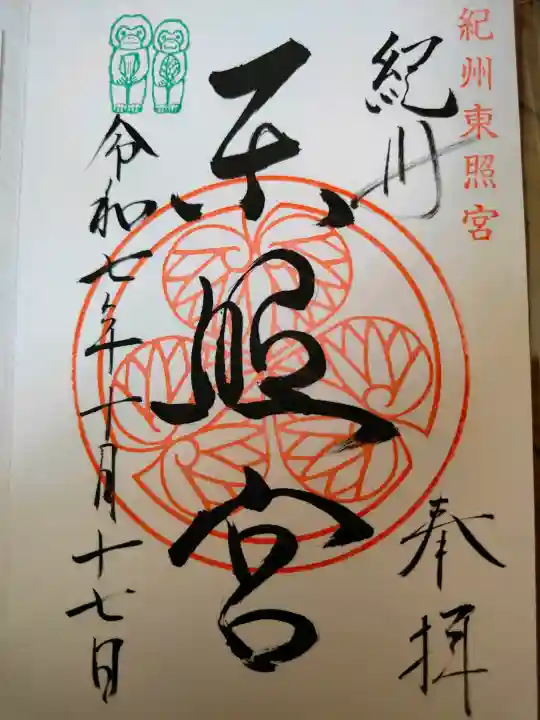 紀州東照宮
紀州
奉拝
東照宮
令和七年十月十七日